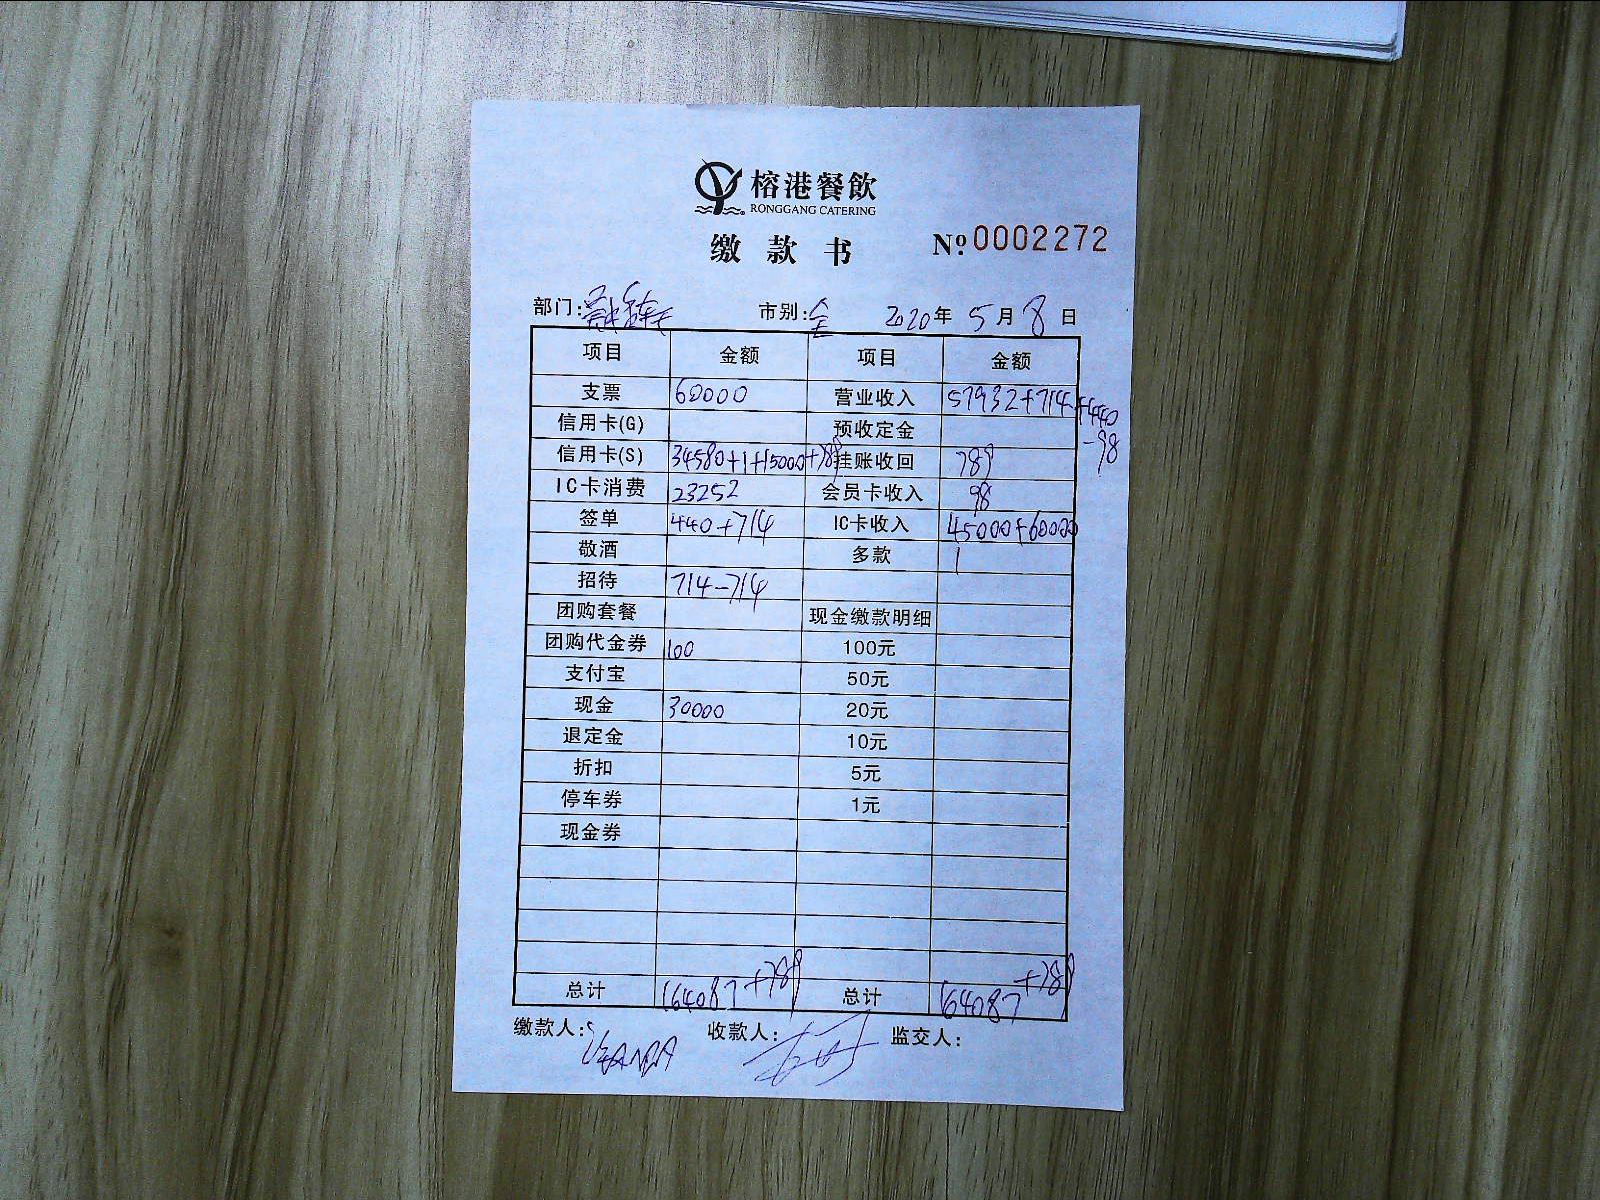 榕港餐飲
RONGGANG CATERING
缴款书 Nº:0002272
部门: 市别:全 2020年 5月8日
项目 金额 项目 金额
支票 60000 营业收入 57932+714+440-98
信用卡(G) 预收定金
信用卡(S) 34580+1+15000+789 挂账收回 789
IC卡消费 23252 会员卡收入 98
签单 440+714 IC卡收入 45000+60000
敬酒 多款 1
招待 714-714
团购套餐 现金缴款明细
团购代金券 100 100元
支付宝 50元
现金 30000 20元
退定金 10元
折扣 5元
停车券 1元
现金券
总计 164087+789 总计 164087+789
缴款人: 收款人: 监交人: